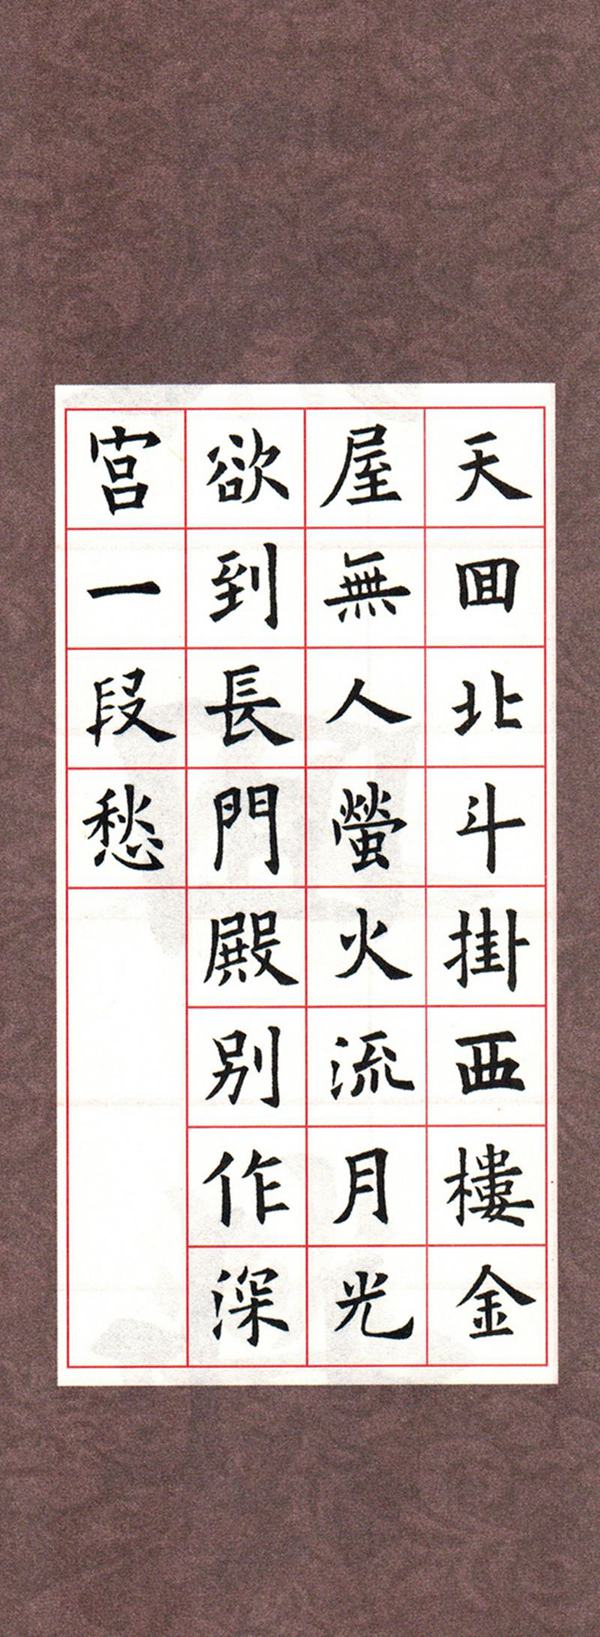 天囬北斗掛西樓金
屋無人螢火流月光
欲到長門殿別作深
宮一段愁